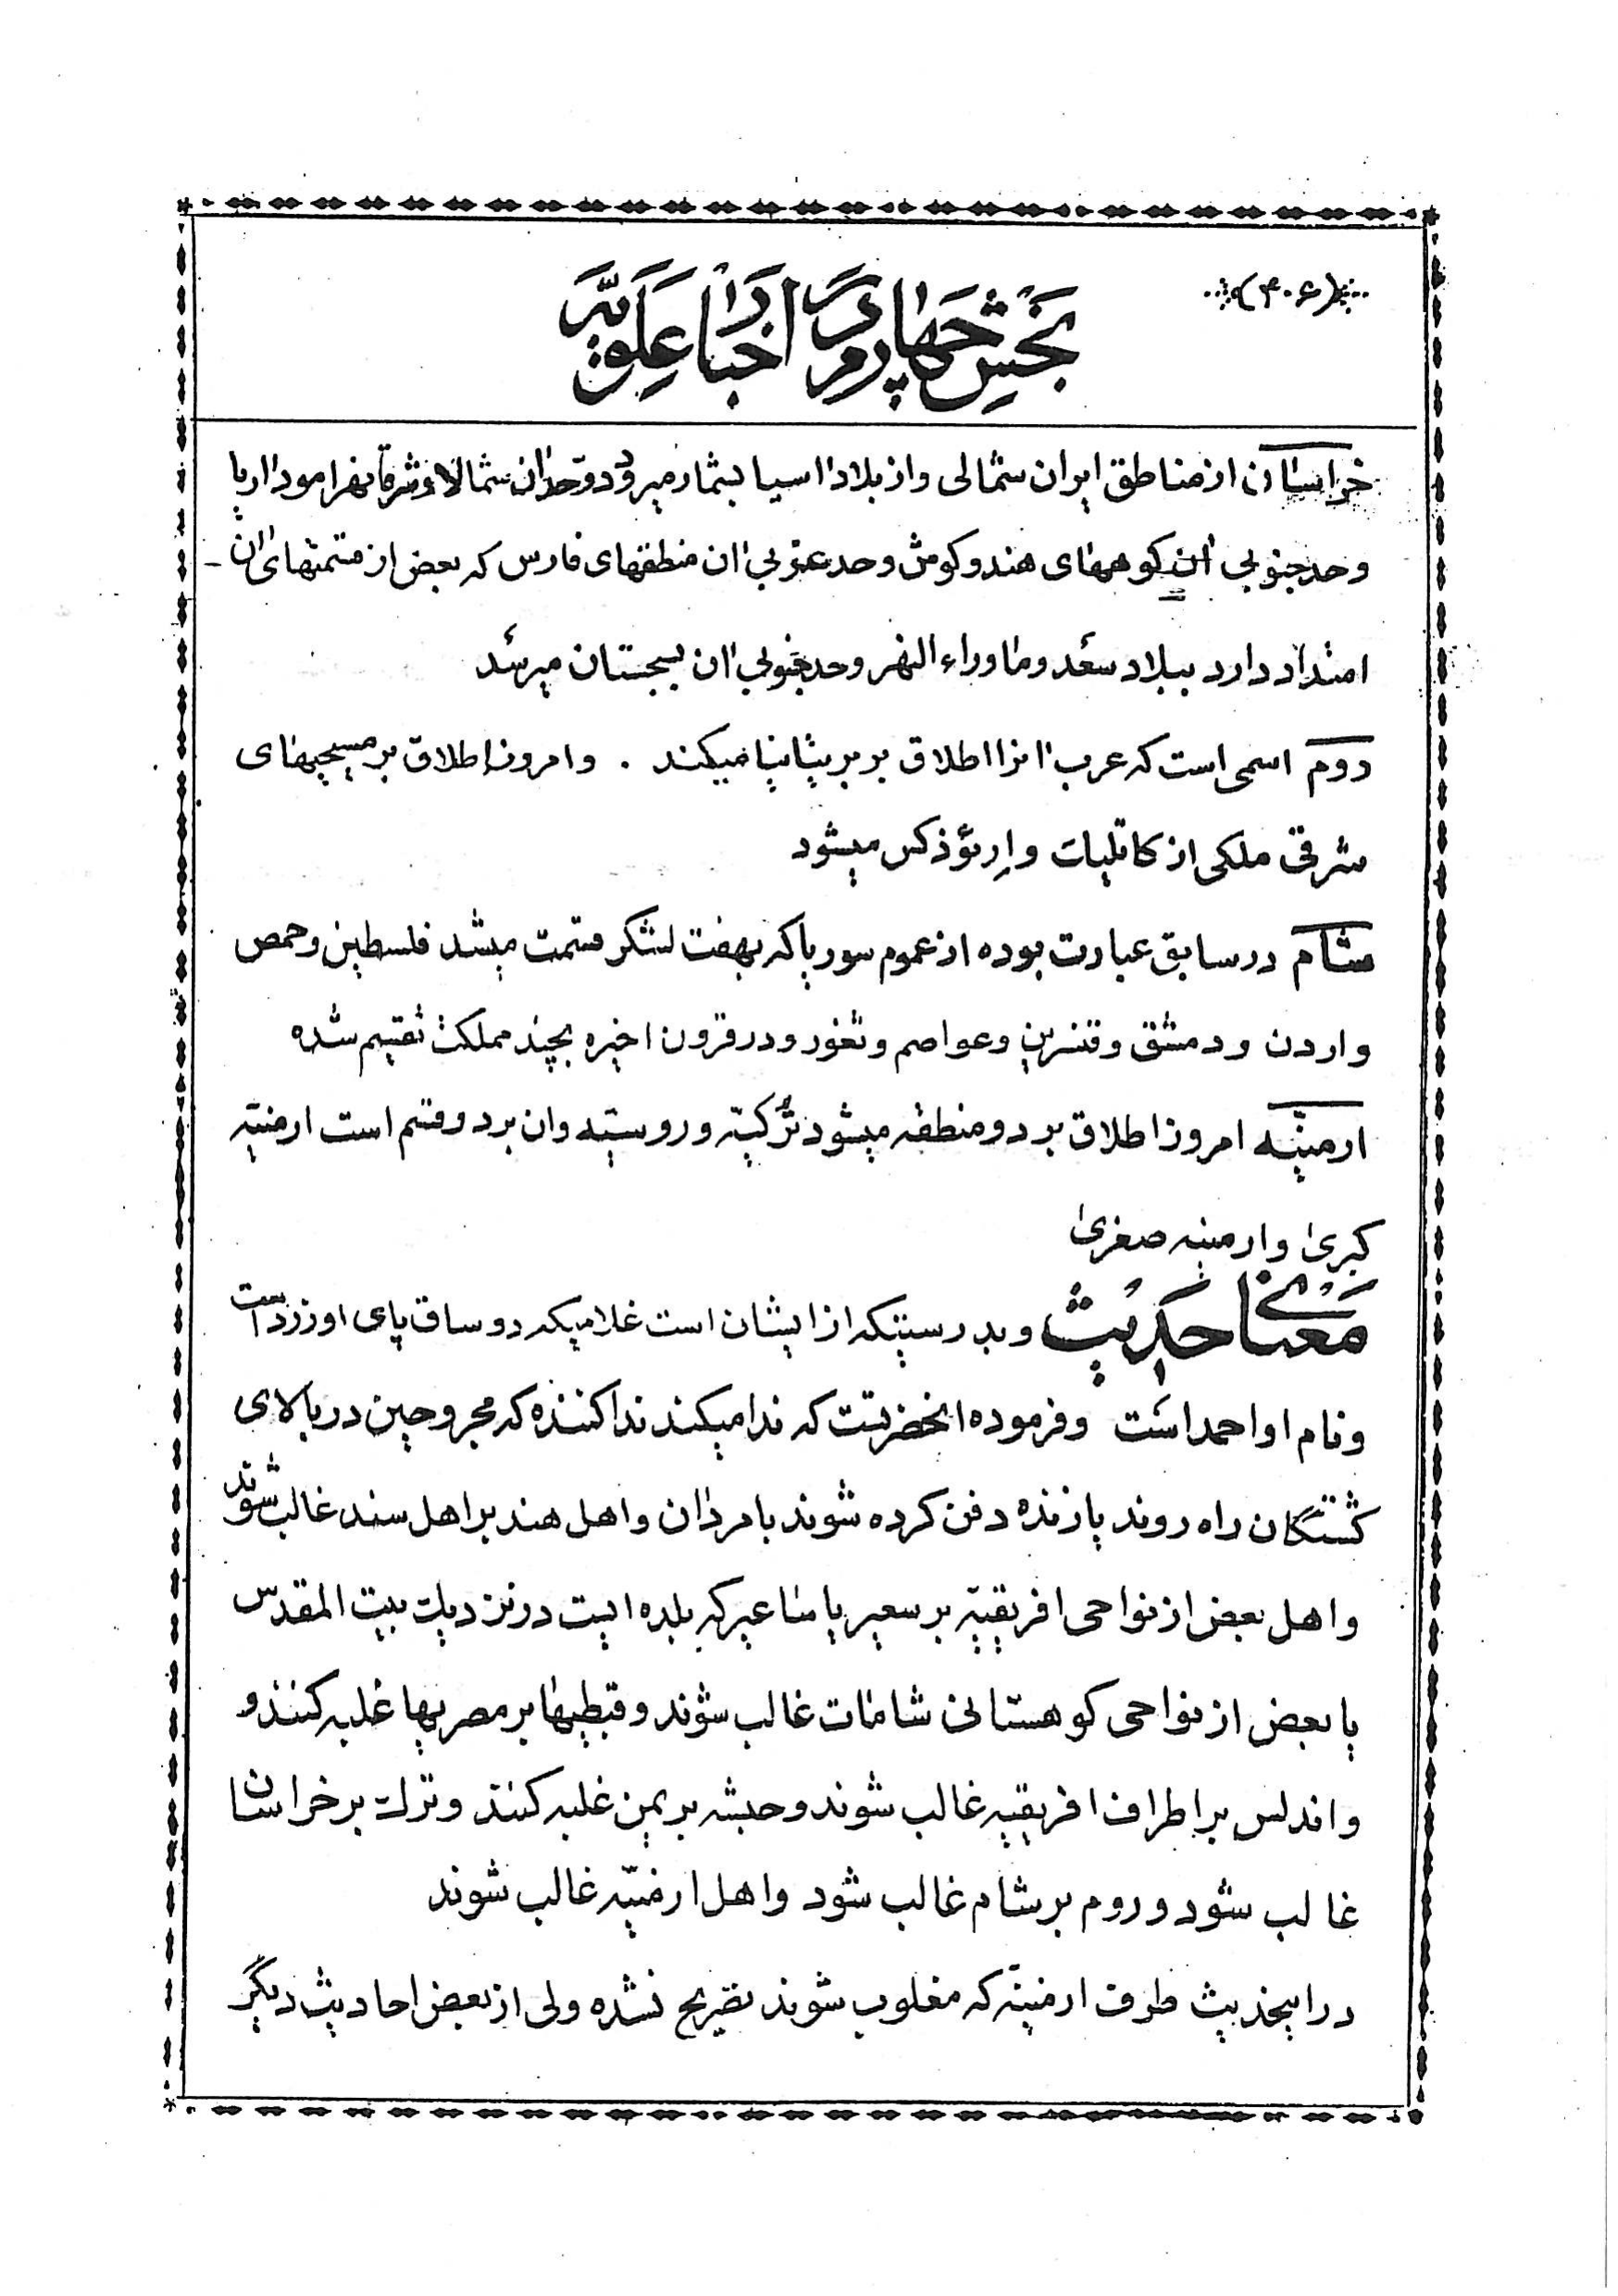 (۴۰۶)
بخش چهارم در اخبار علویّه
خراسان از مناطق ایران شمالی و از بلاد اسیا بشمار میرود و حدّ ان شمالا و شرقا نهر امودا ریا
و حد جنوبی ان کوههای هندوکوش و حد غربی ان منطقهای فارس که بعض از قسمتهای ان
امتداد دارد ببلاد سغد و ما وراء النهر و حد جنوبی ان بسجستان میرسد
روم اسمی است که عرب انرا اطلاق بر بریتانیا میکند . و امروز اطلاق بر مسیحیهای
شرقی ملکی از کاتلیات و ارتؤذکس میشود
شام در سابق عبارت بوده از عموم سوریا که بهفت لشکر قسمت میشد فلسطین و حمص
و اردن و دمشق و قنسرین و عواصم و ثغور و در قرون اخیره بچند مملکت تقسیم شده
ارمنیّه امروز اطلاق بر دو منطقه میشود ترکیّه و روسیّه و ان بر دو قسم است ارمنیّه
کبری و ارمنیه صغری
معنای حدیث و بدرستیکه از ایشان است غلامیکه دو ساق پای او زرد است
و نام او احمد است و فرموده انحضرتست که ندا میکند ندا کننده که مجروحین در بالای
کشتگان راه روند یا زنده دفن کرده شوند با مردان و اهل هند بر اهل سند غالب شوند
و اهل بعض از نواحی افریقیّه بر سعیر یا ساعیر که بلده ایست در نزدیک بیت المقدس
یا بعض از نواحی کوهستانی شامات غالب شوند و قبطیها بر مصریها غلبه کنند و
و اندلس بر اطراف افریقیه غالب شوند و حبشه بر یمن غلبه کنند و ترک بر خراسان
غالب شود و روم بر شام غالب شود و اهل ارمنیّه غالب شوند
در اینحدیث طرف ارمنیّه که مغلوب شوند تصریح نشده ولی از بعض احادیث دیگر